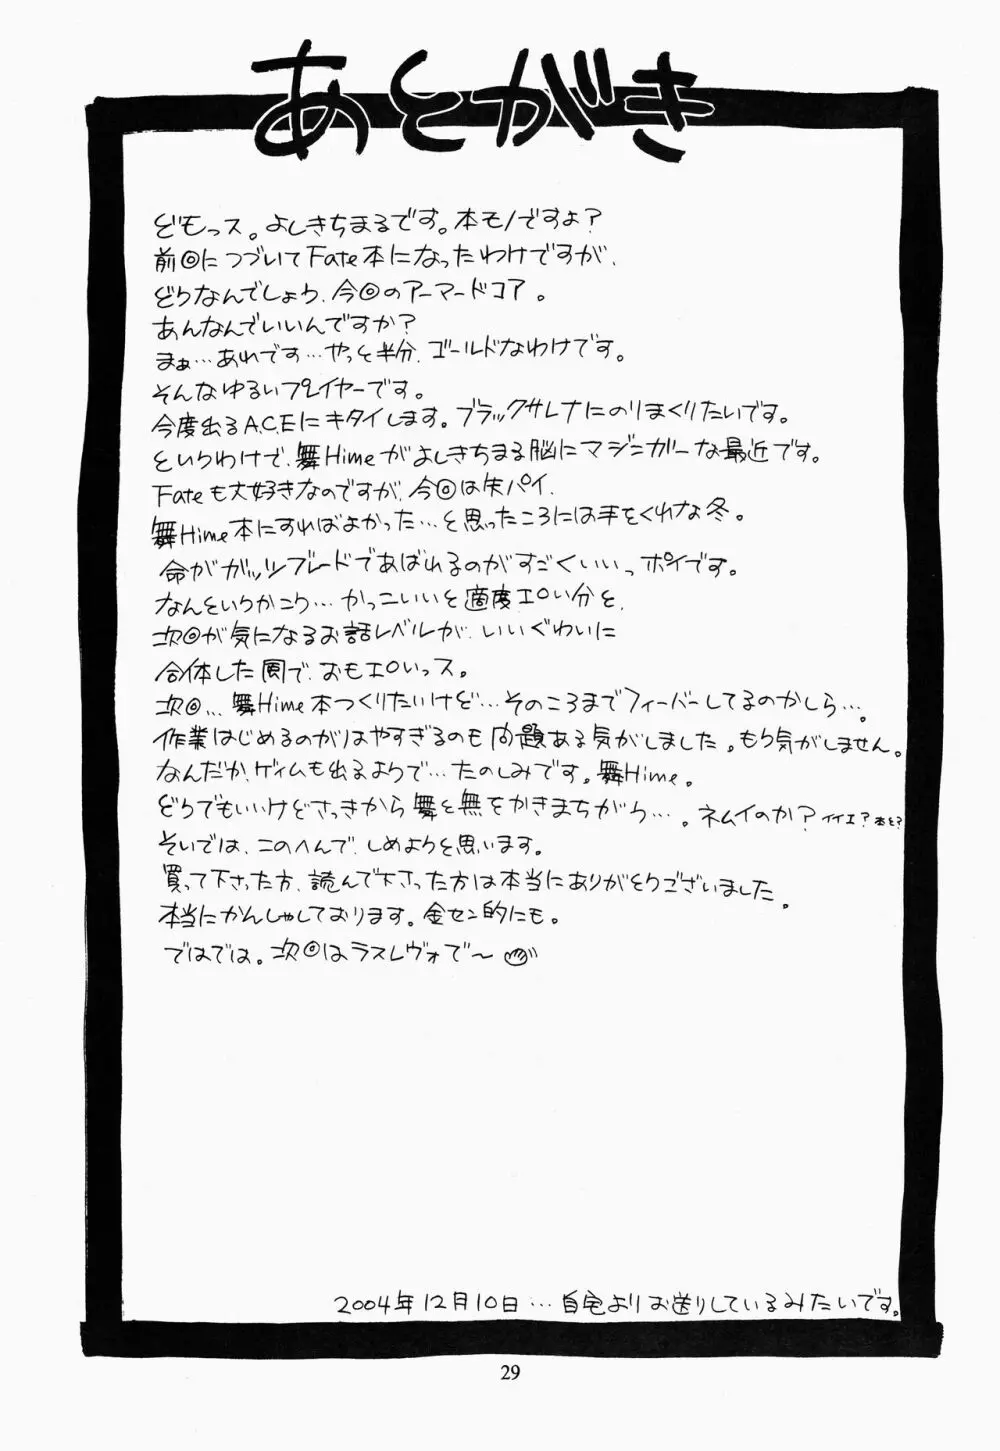 あとがき
どもっス。よしきちまるです。本モノですよ？
前回につづいてFate本になったわけですが、
どうなんでしょう、今回のアーマードコア。
あんなんでいいんですか？
まぁ…あれです…やっと半分、ゴールドなわけです。
そんなゆるいプレイヤーです。
今度出るA.C.Eにキタイします。ブラックサレナにのりまくりたいです。
というわけで、舞Himeがよしきちまる脳にマジニガーな最近です。
Fateも大好きなのですが、今回は失パイ、
舞Hime本にすればよかった…と思ったころには手をくれな冬。
命がガッツブレードであばれるのがすごくいいっポイです。
なんというかこう…かっこいいと適度エロい分と、
次回が気になるお話レベルが、いいぐわいに
合体した風で、おもエロいっス。
次回…舞Hime本つくりたいけど…そのころまでフィーバーしてるのかしら…。
作業はじめるのがはやすぎるのも問題ある気がしました。もう気がしません。
なんだか、ゲイムも出るようで…たのしみです。舞Hime。
どうでもいいけどさっきから舞と無をかきまちがう…。ネムイのか？イイエ？本を？
そいでは、このへんで、しめようと思います。
買って下さった方、読んで下さった方は本当にありがとうございました。
本当にかんしゃしております。金セン的にも。
ではでは。次回はラスレヴォで～
2004年12月10日…自宅よりお送りしているみたいです。
29